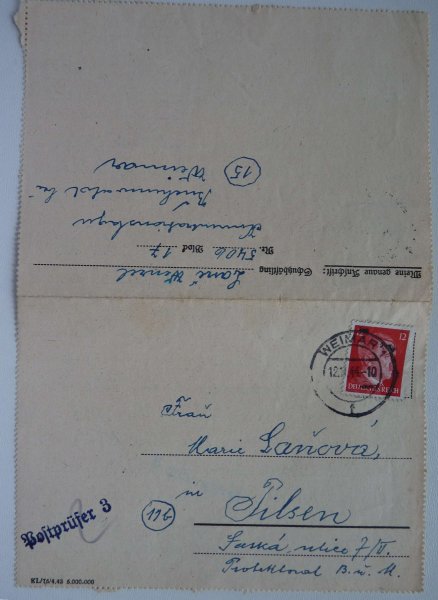 Meine genaue Anschrift:
Schutzhäftling Laně Wenzel
Nr. 5406 Block 17
Konzentrationslager
Buchenwald bei
Weimar
15
WEIMAR 1
-10
12
DEUTSCHES REICH
Frau
Marie Laňová,
in
11b
Pilsen
ulice 7/II.
Protektorat B. u. M.
Postprüfer 3
KL/16/4.43 6.000.000